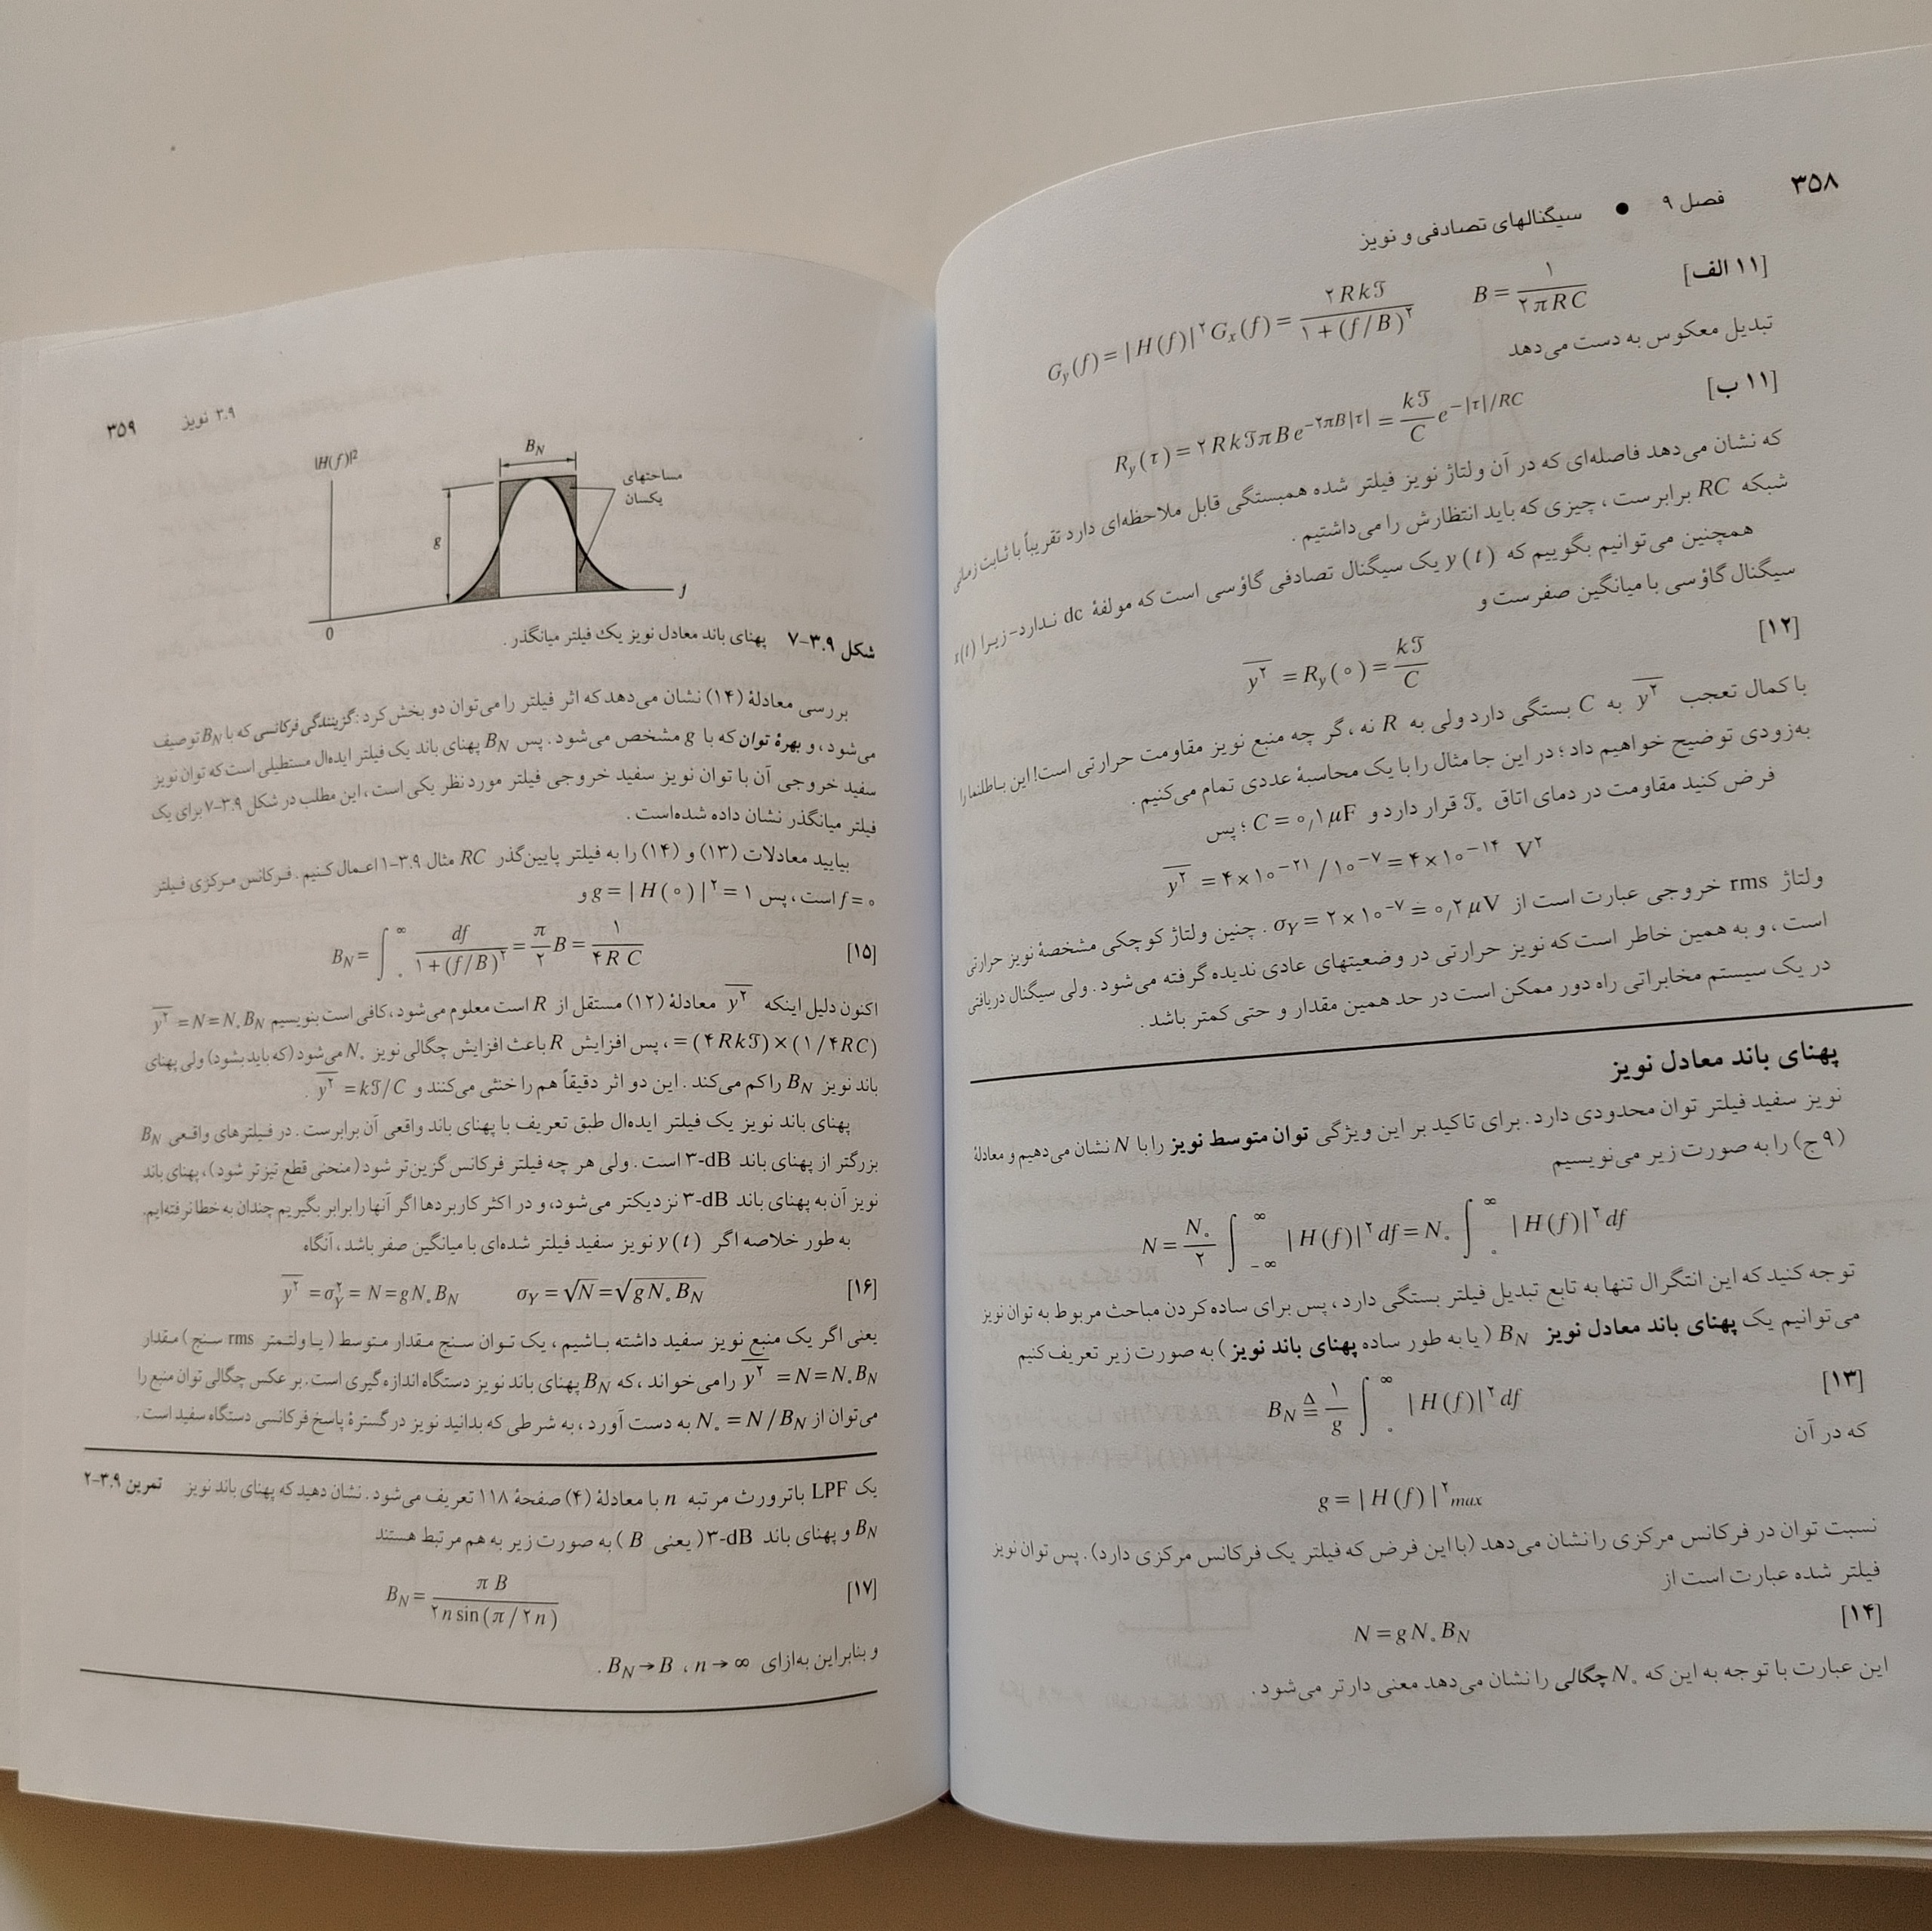 ۳۵۸
فصل ۹ ● سیگنالهای تصادفی و نویز
[۱۱ الف] G_y(f) = |H(f)|^۲ G_x(f) = ۲Rk𝒯 / (۱+(f/B)^۲) B = ۱ / (۲πRC)
تبدیل معکوس به دست می‌دهد
[۱۱ ب] R_y(τ) = ۲Rk𝒯πB e^(−۲πB|τ|) = (k𝒯/C) e^(−|τ|/RC)
که نشان می‌دهد فاصله‌ای که در آن ولتاژ نویز فیلتر شده همبستگی قابل ملاحظه‌ای دارد تقریباً با ثابت زمانی
شبکه RC برابرست، چیزی که باید انتظارش را می‌داشتیم.
همچنین می‌توانیم بگوییم که y(t) یک سیگنال تصادفی گاؤسی است که مولفهٔ dc ندارد- زیرا x(t)
سیگنال گاؤسی با میانگین صفرست و
[۱۲] \overline{y^۲} = R_y(۰) = k𝒯/C
با کمال تعجب \overline{y^۲} به C بستگی دارد ولی به R نه، گر چه منبع نویز مقاومت حرارتی است! این باطلنما را
به‌زودی توضیح خواهیم داد؛ در این جا مثال را با یک محاسبهٔ عددی تمام می‌کنیم.
فرض کنید مقاومت در دمای اتاق 𝒯_۰ قرار دارد و C = ۰٫۱ μF؛ پس
\overline{y^۲} = ۴×۱۰^(−۲۱) / ۱۰^(−۷) = ۴×۱۰^(−۱۴) V^۲
ولتاژ rms خروجی عبارت است از σ_Y = ۲×۱۰^(−۷) = ۰٫۲ μV. چنین ولتاژ کوچکی مشخصهٔ نویز حرارتی
است، و به همین خاطر است که نویز حرارتی در وضعیتهای عادی ندیده گرفته می‌شود. ولی سیگنال دریافتی
در یک سیستم مخابراتی راه دور ممکن است در حد همین مقدار و حتی کمتر باشد.
پهنای باند معادل نویز
نویز سفید فیلتر توان محدودی دارد. برای تاکید بر این ویژگی توان متوسط نویز را با N نشان می‌دهیم و معادلهٔ
(۹ ج) را به صورت زیر می‌نویسیم
N = (N_۰/۲) ∫_{−∞}^{∞} |H(f)|^۲ df = N_۰ ∫_۰^{∞} |H(f)|^۲ df
توجه کنید که این انتگرال تنها به تابع تبدیل فیلتر بستگی دارد، پس برای ساده کردن مباحث مربوط به توان نویز
می‌توانیم یک پهنای باند معادل نویز B_N (یا به طور ساده پهنای باند نویز) به صورت زیر تعریف کنیم
[۱۳] B_N ≜ (۱/g) ∫_۰^{∞} |H(f)|^۲ df
که در آن
g = |H(f)|^۲_max
نسبت توان در فرکانس مرکزی را نشان می‌دهد (با این فرض که فیلتر یک فرکانس مرکزی دارد). پس توان نویز
فیلتر شده عبارت است از
[۱۴] N = gN_۰B_N
این عبارت با توجه به این که N_۰ چگالی را نشان می‌دهد معنی دارتر می‌شود.
۳.۹ نویز ۳۵۹
|H(f)|²
B_N
مساحتهای
یکسان
g
0
f
شکل ۳.۹-۷ پهنای باند معادل نویز یک فیلتر میانگذر.
بررسی معادلهٔ (۱۴) نشان می‌دهد که اثر فیلتر را می‌توان دو بخش کرد: گزینندگی فرکانسی که با B_N توصیف
می‌شود، و بهرهٔ توان که با g مشخص می‌شود. پس B_N پهنای باند یک فیلتر ایده‌ال مستطیلی است که توان نویز
سفید خروجی آن با توان نویز سفید خروجی فیلتر مورد نظر یکی است، این مطلب در شکل ۳.۹-۷ برای یک
فیلتر میانگذر نشان داده شده‌است.
بیایید معادلات (۱۳) و (۱۴) را به فیلتر پایین‌گذر RC مثال ۳.۹-۱ اعمال کنیم. فرکانس مرکزی فیلتر
f = ۰ است، پس g = |H(۰)|^۲ = ۱ و
[۱۵] B_N = ∫_۰^{∞} df / (۱+(f/B)^۲) = (π/۲) B = ۱ / (۴RC)
اکنون دلیل اینکه \overline{y^۲} معادلهٔ (۱۲) مستقل از R است معلوم می‌شود، کافی است بنویسیم \overline{y^۲} = N = N_۰B_N
= (۴Rk𝒯)×(۱/۴RC)، پس افزایش R باعث افزایش چگالی نویز N_۰ می‌شود (که باید بشود) ولی پهنای
باند نویز B_N را کم می‌کند. این دو اثر دقیقاً هم را خنثی می‌کنند و \overline{y^۲} = k𝒯/C.
پهنای باند نویز یک فیلتر ایده‌ال طبق تعریف با پهنای باند واقعی آن برابرست. در فیلترهای واقعی B_N
بزرگتر از پهنای باند ۳-dB است. ولی هر چه فیلتر فرکانس گزین‌تر شود (منحنی قطع تیزتر شود)، پهنای باند
نویز آن به پهنای باند ۳-dB نزدیکتر می‌شود، و در اکثر کاربردها اگر آنها را برابر بگیریم چندان به خطا نرفته‌ایم.
به طور خلاصه اگر y(t) نویز سفید فیلتر شده‌ای با میانگین صفر باشد، آنگاه
[۱۶] \overline{y^۲} = σ_Y^۲ = N = gN_۰B_N σ_Y = √N = √(gN_۰B_N)
یعنی اگر یک منبع نویز سفید داشته باشیم، یک توان سنج مقدار متوسط (یا ولتمتر rms سنج) مقدار
\overline{y^۲} = N = N_۰B_N را می‌خواند، که B_N پهنای باند نویز دستگاه اندازه گیری است. بر عکس چگالی توان منبع را
می‌توان از N_۰ = N/B_N به دست آورد، به شرطی که بدانید نویز در گسترهٔ پاسخ فرکانسی دستگاه سفید است.
یک LPF باترورث مرتبه n با معادلهٔ (۴) صفحهٔ ۱۱۸ تعریف می‌شود. نشان دهید که پهنای باند نویز تمرین ۳.۹-۲
B_N و پهنای باند ۳-dB (یعنی B) به صورت زیر به هم مرتبط هستند
[۱۷] B_N = πB / (۲n sin(π/۲n))
و بنابراین به‌ازای n → ∞، B_N → B.